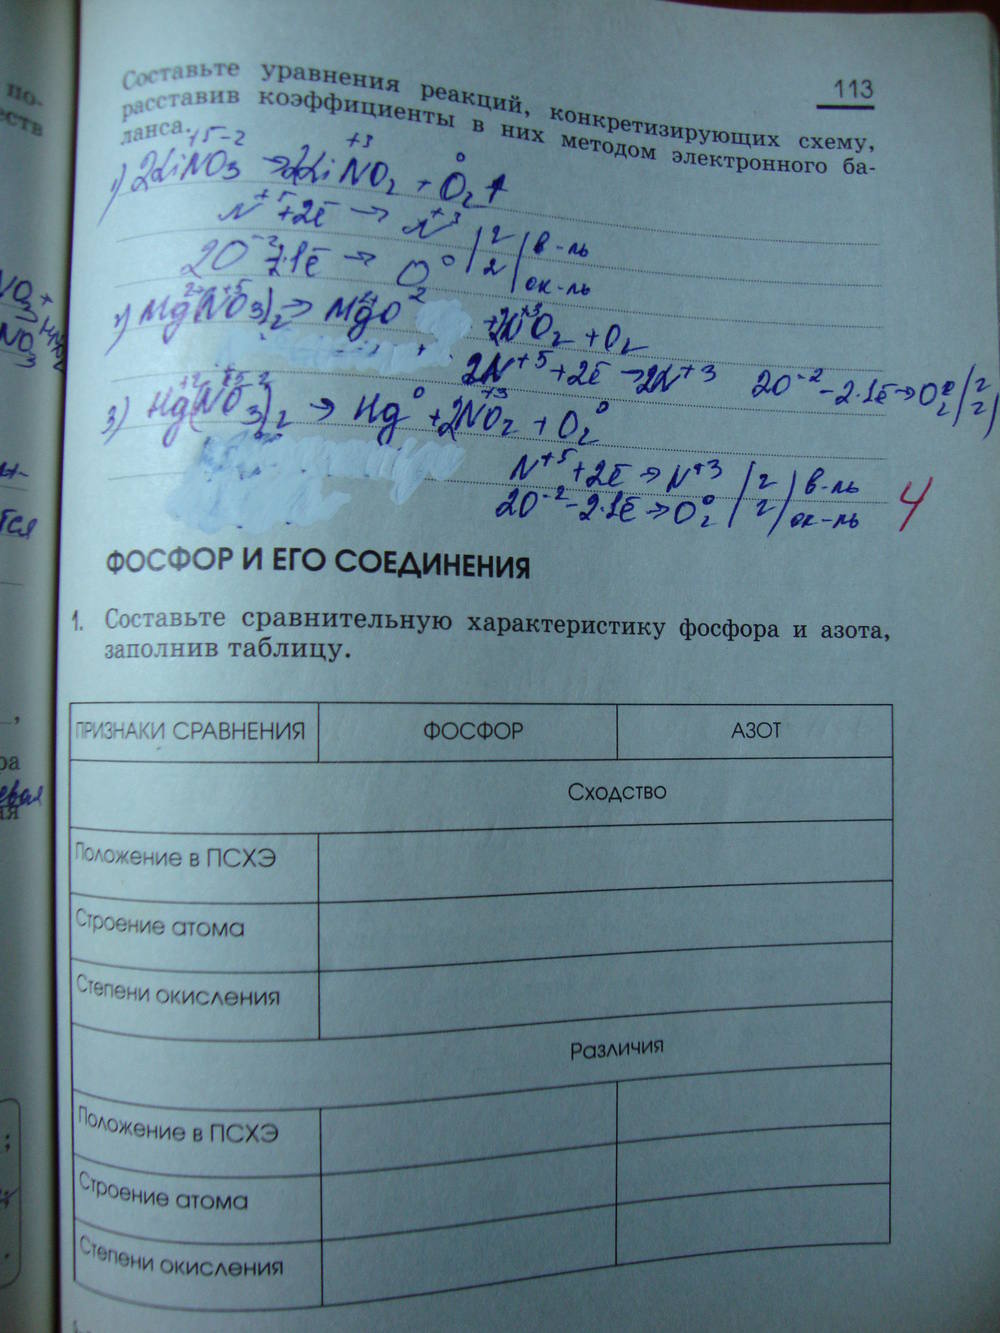 113
Составьте уравнения реакций, конкретизирующих схему,
расставив коэффициенты в них методом электронного ба-
ланса.
+5-2 +3 0
1) 2LiNO3 → 2LiNO2 + O2↑
N+5 +2ē → N+3 | 2 | в-ль
2O-2 -2·1ē → O20 | 2 | ок-ль
2) Mg(NO3)2 → MgO + 2NO2 + O2
2N+5 +2ē → 2N+3 2O-2 -2·1ē → O20 | 2 | 2 |
3) Hg(NO3)2 → Hg0 + 2NO2 + O20
N+5 +2ē → N+3 | 2 | в-ль
2O-2 -2·1ē → O20 | 2 | ок-ль
4
ФОСФОР И ЕГО СОЕДИНЕНИЯ
1. Составьте сравнительную характеристику фосфора и азота,
заполнив таблицу.
ПРИЗНАКИ СРАВНЕНИЯ ФОСФОР АЗОТ
Сходство
Положение в ПСХЭ
Строение атома
Степени окисления
Различия
Положение в ПСХЭ
Строение атома
Степени окисления